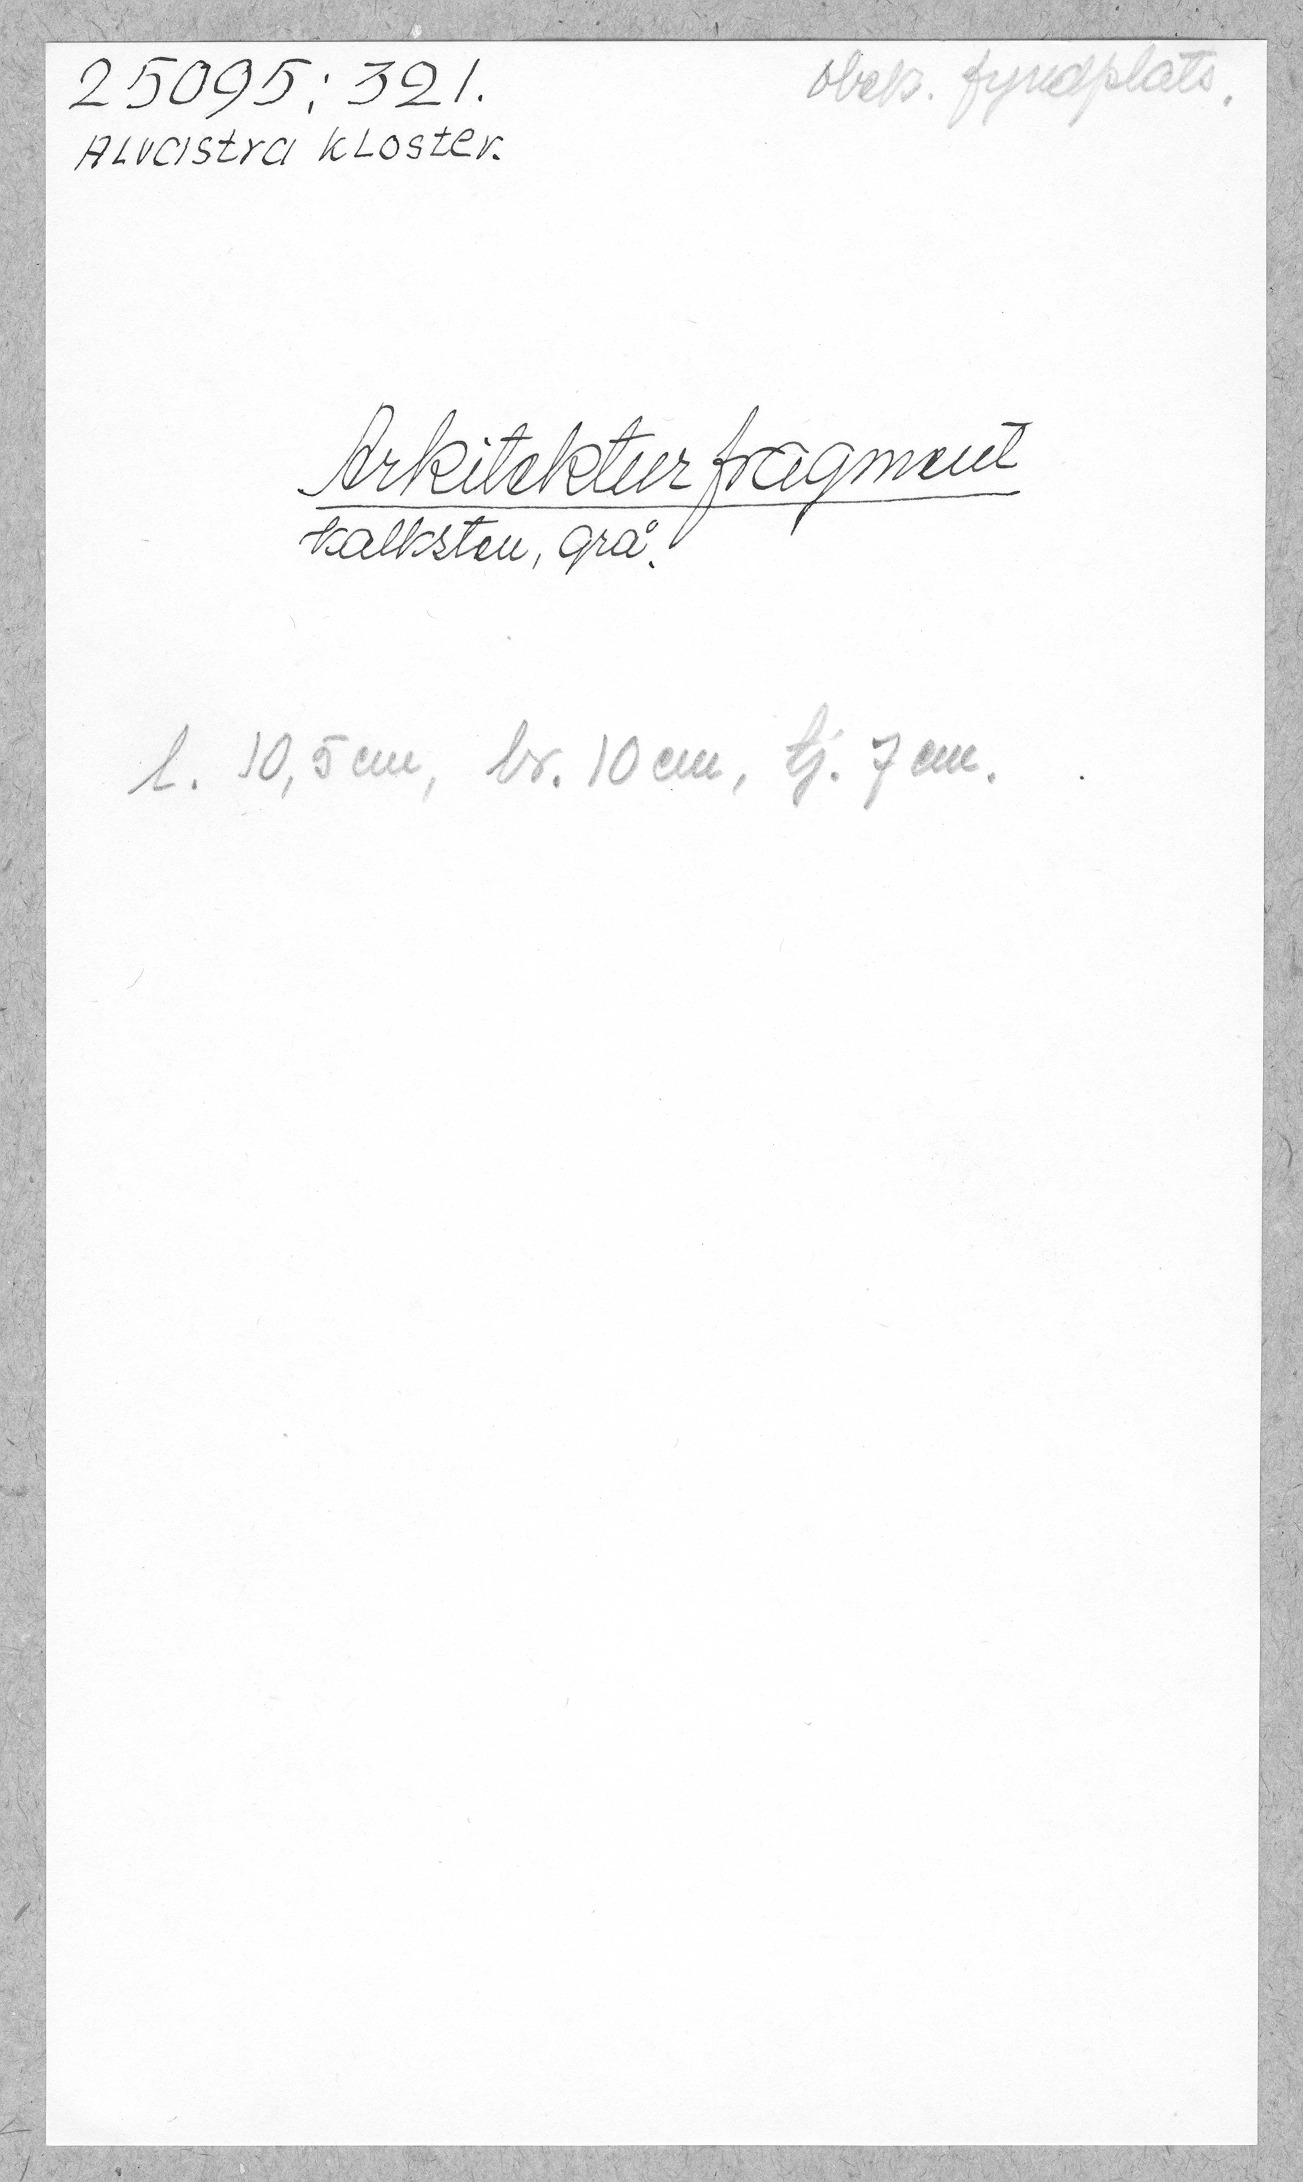 25095:321.
obek. fyndplats.
Alvastra kloster.
Arkitekturfragment
kalksten, grå.
l. 10,5 cm, br. 10 cm, tj. 7 cm.